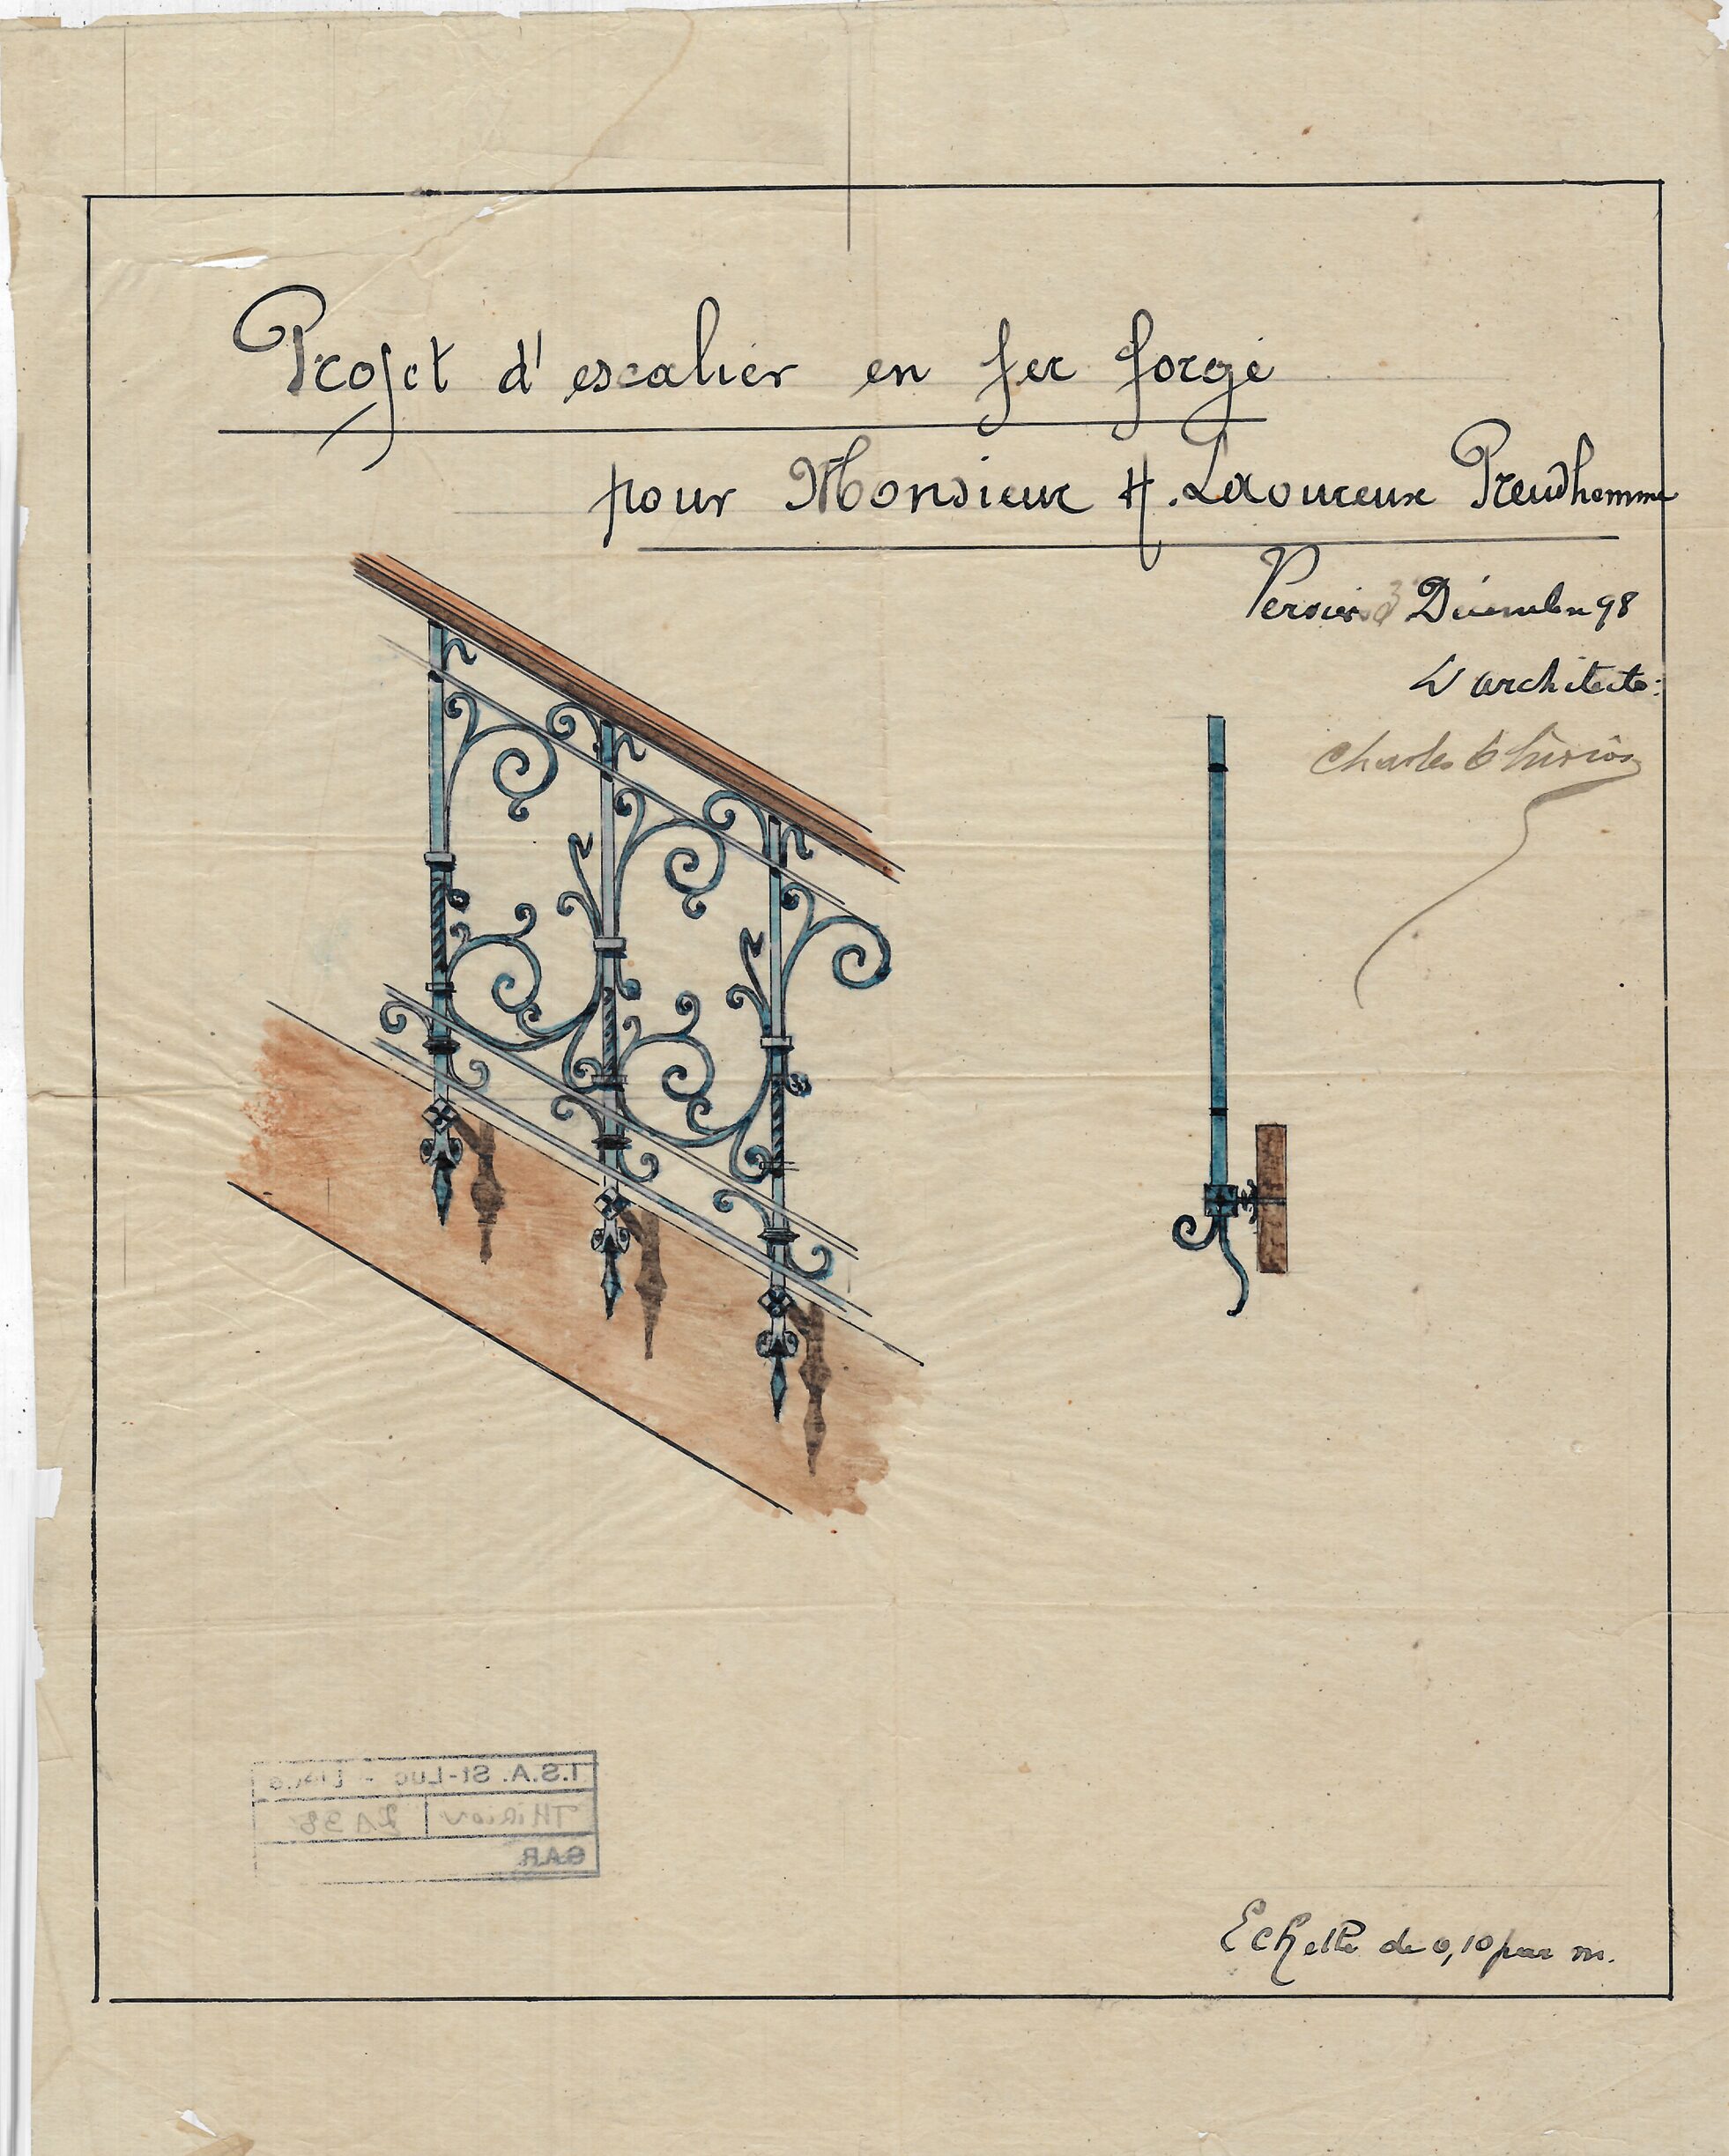 Projet d'escalier en fer forgé
pour Monsieur H. Laoureux Preudhomme
Verviers 3 Décembre 98
L'architecte:
Charles Thirion
I.S.A. St-Luc - Liège
THIRION 2A38
GAR
Echelle de 0,10 par m.